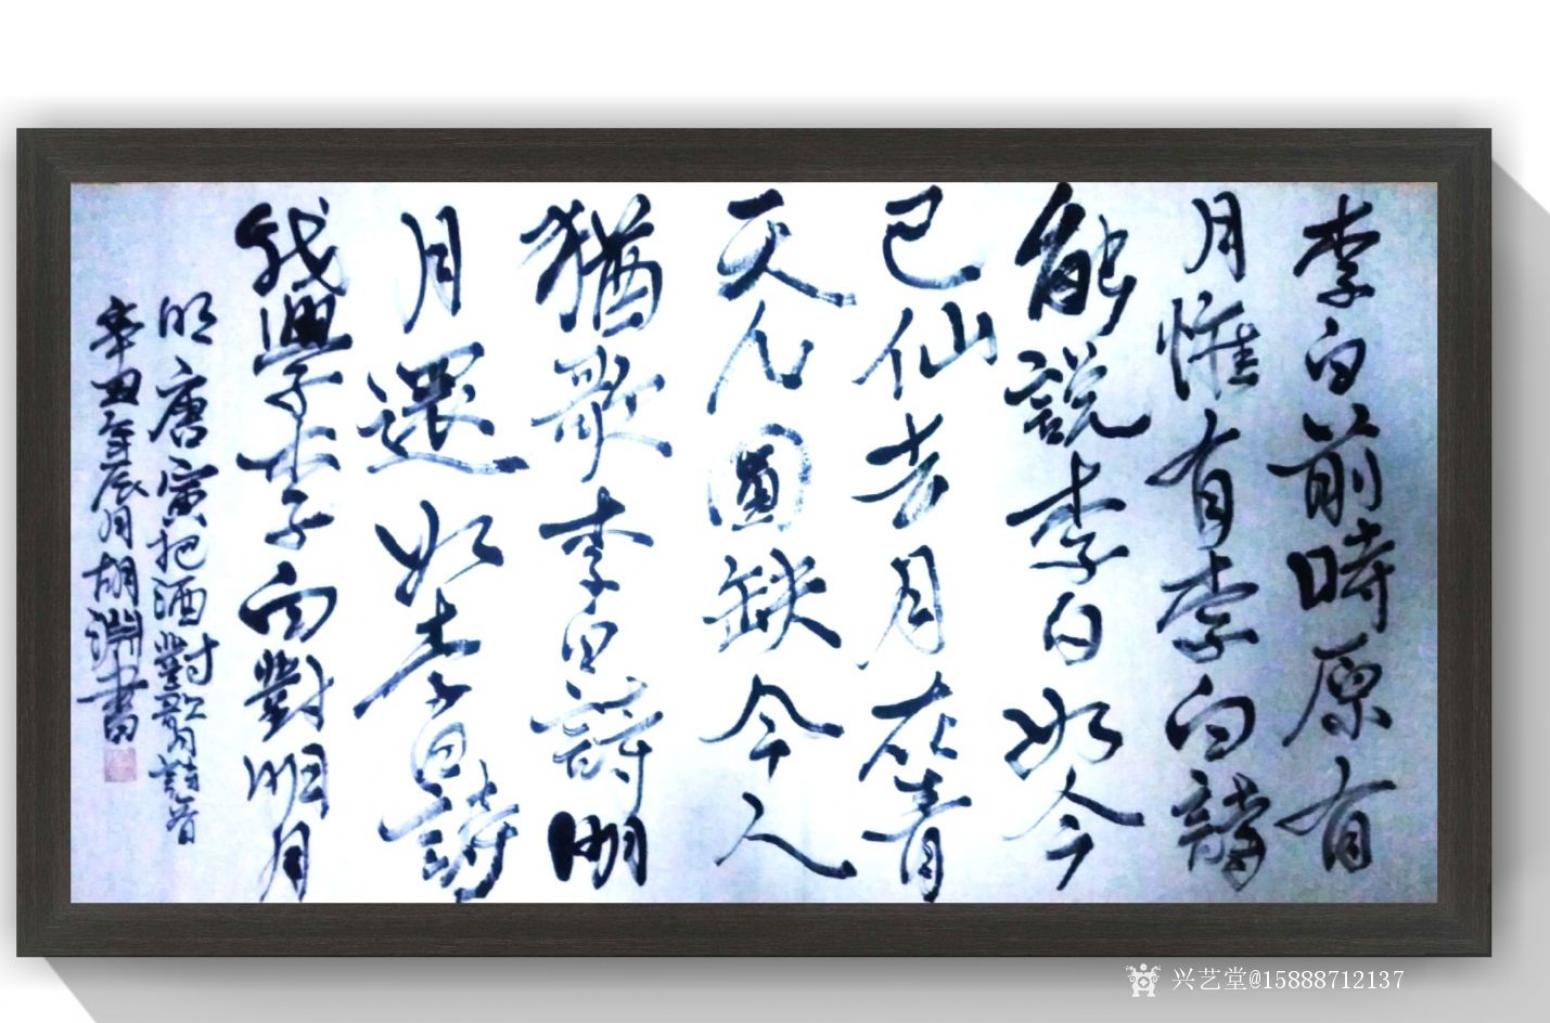 李白前時原有
月惟有李白詩
能說李白如今
已仙去月在青
天几圓缺今人
猶歌李白詩明
月還如李白詩
我學李白對明月
明唐寅把酒對歌月詩首
辛丑年辰月胡淵書
兴艺堂@15888712137